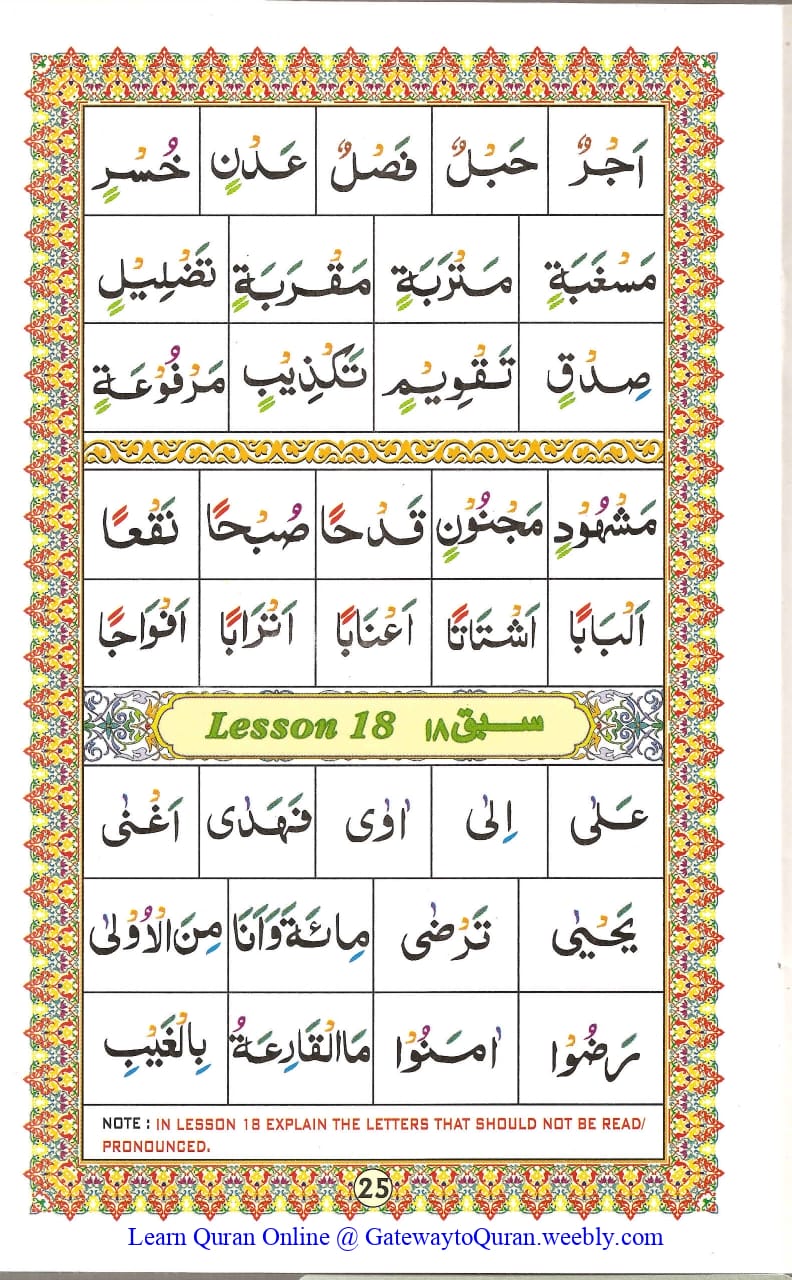 اَجْرٌ حَبْلٌ فَصْلٌ عَدْنٍ خُسْرٍ
مَسْغَبَةٍ مَتْرَبَةٍ مَقْرَبَةٍ تَضْلِيْلٍ
صِدْقٍ تَقْوِيْمٍ تَكْذِيْبٍ مَرْفُوْعَةٍ
مَشْهُوْدٍ مَجْنُوْنٍ قَدْحًا صُبْحًا نَقْعًا
اَلْبَابًا اَشْتَاتًا اَعْنَابًا اَتْرَابًا اَفْوَاجًا
Lesson 18 سبق ۱۸
عَلٰى اِلٰى اٰوٰى فَهَدٰى اَغْنٰى
يَحْيٰى تَرْضٰى مِائَةَ وَاَنَا مِنَ الْاُوْلٰى
رَضُوْا اٰمَنُوْا مَا الْقَارِعَةُ بِالْغَيْبِ
NOTE : IN LESSON 18 EXPLAIN THE LETTERS THAT SHOULD NOT BE READ/
PRONOUNCED.
25
Learn Quran Online @ GatewaytoQuran.weebly.com